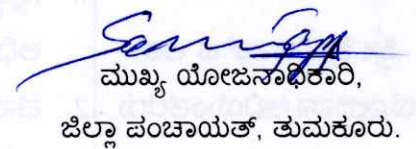 ಮುಖ್ಯ ಯೋಜನಾಧಿಕಾರಿ,
ಜಿಲ್ಲಾ ಪಂಚಾಯತ್, ತುಮಕೂರು.